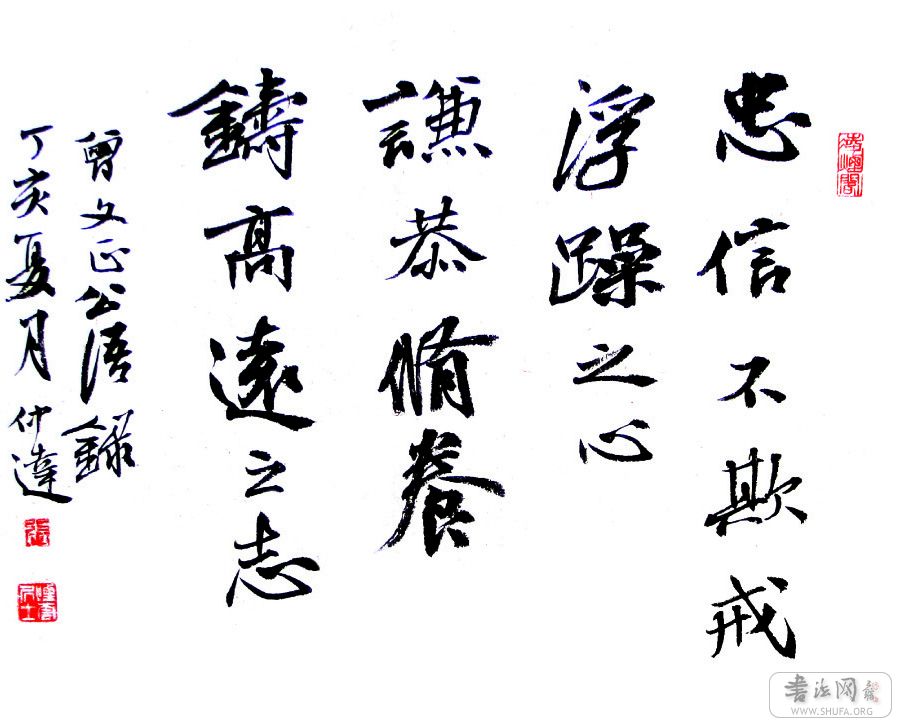 忠信不欺戒
浮躁之心
謙恭脩養
鑄高遠之志
曾文正公语録
丁亥夏月仲達
書法网
WWW.SHUFA.ORG